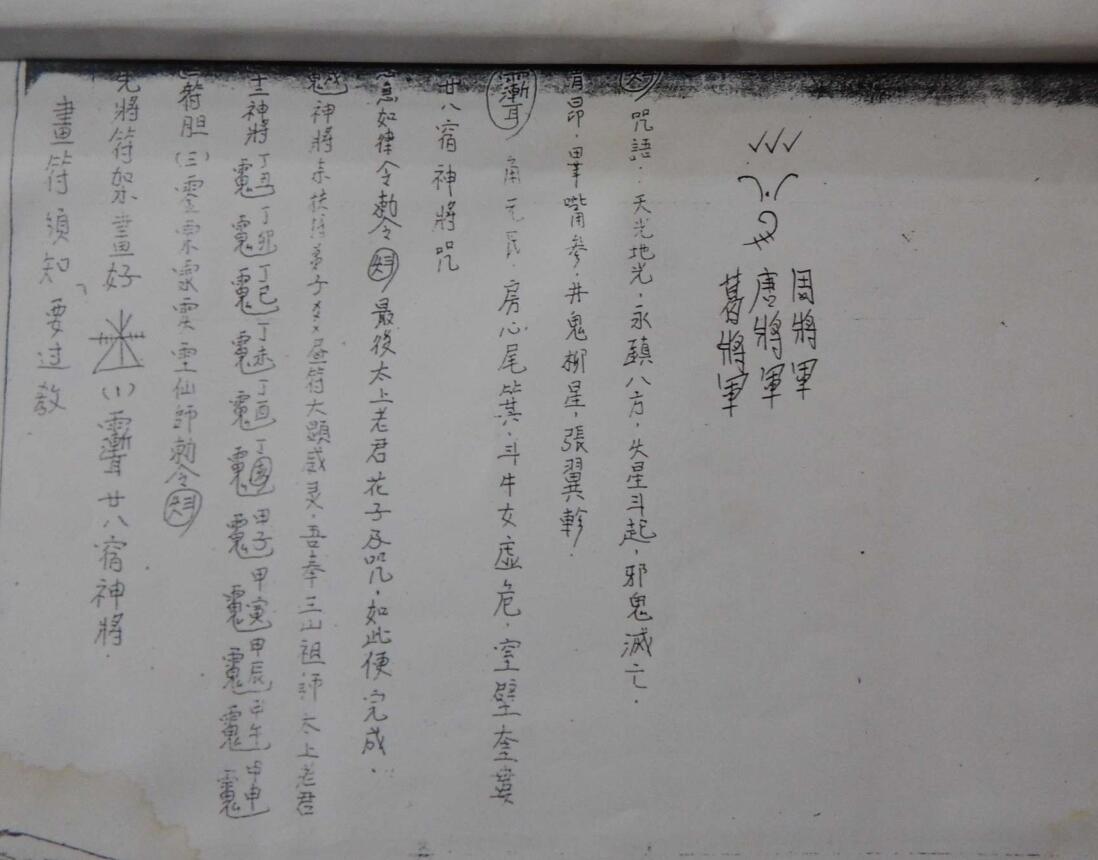 畫符須知、要过教
先將符架畫好 (1) 廿八宿神將.
符胆 (三) 仙師勅令
神將 丁丑 丁卯 丁巳 丁未 丁酉 甲子 甲寅 甲辰 甲午 甲申
神將 弟子××昼符大顕威灵.吾奉三山祖師太上老君
急如律令勅令 最後太上老君花子及咒,如此便完成.
廿八宿神將咒
角亢氐.房心尾箕.斗牛女虛危.室壁奎婁
胃昴.畢嘴參.井鬼柳星,張翼軫.
咒語:天光地光.永鎮八方,火星斗起,邪鬼滅亡.
葛將軍
唐將軍
周將軍